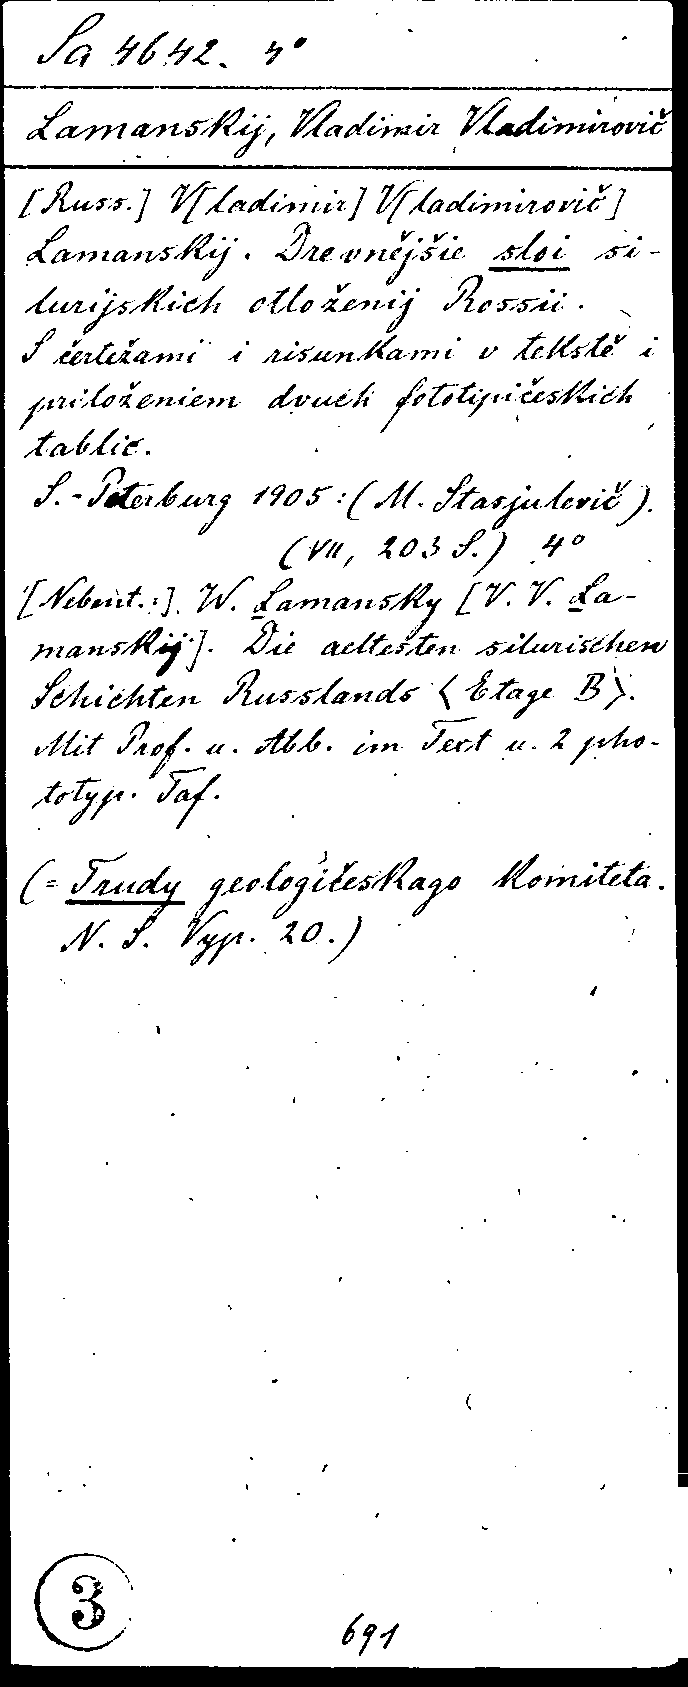 Sa 4642. 4°
Lamanskij, Vladimir Vladimirovič
[Russ.] V[ladimir] V[ladimirovič]
Lamanskij. Drevnějšie sloi si-
lurijskich otloženij Rossii.
S čertežami i risunkami v tekstě i
priloženiem dvuch fototipičeskich
tablic.
S.-Peterburg 1905: (M. Stasjulevič).
(VII, 203 S.) 4°
[Nebent.:] W. Lamansky [V. V. La-
manskij]. Die aeltesten silurischen
Schichten Russlands <Etage B>.
Mit Prof. u. Abb. im Text u. 2 pho-
totyp. Taf.
(= Trudy geologičeskago komiteta.
N. S. Vyp. 20.)
3
691